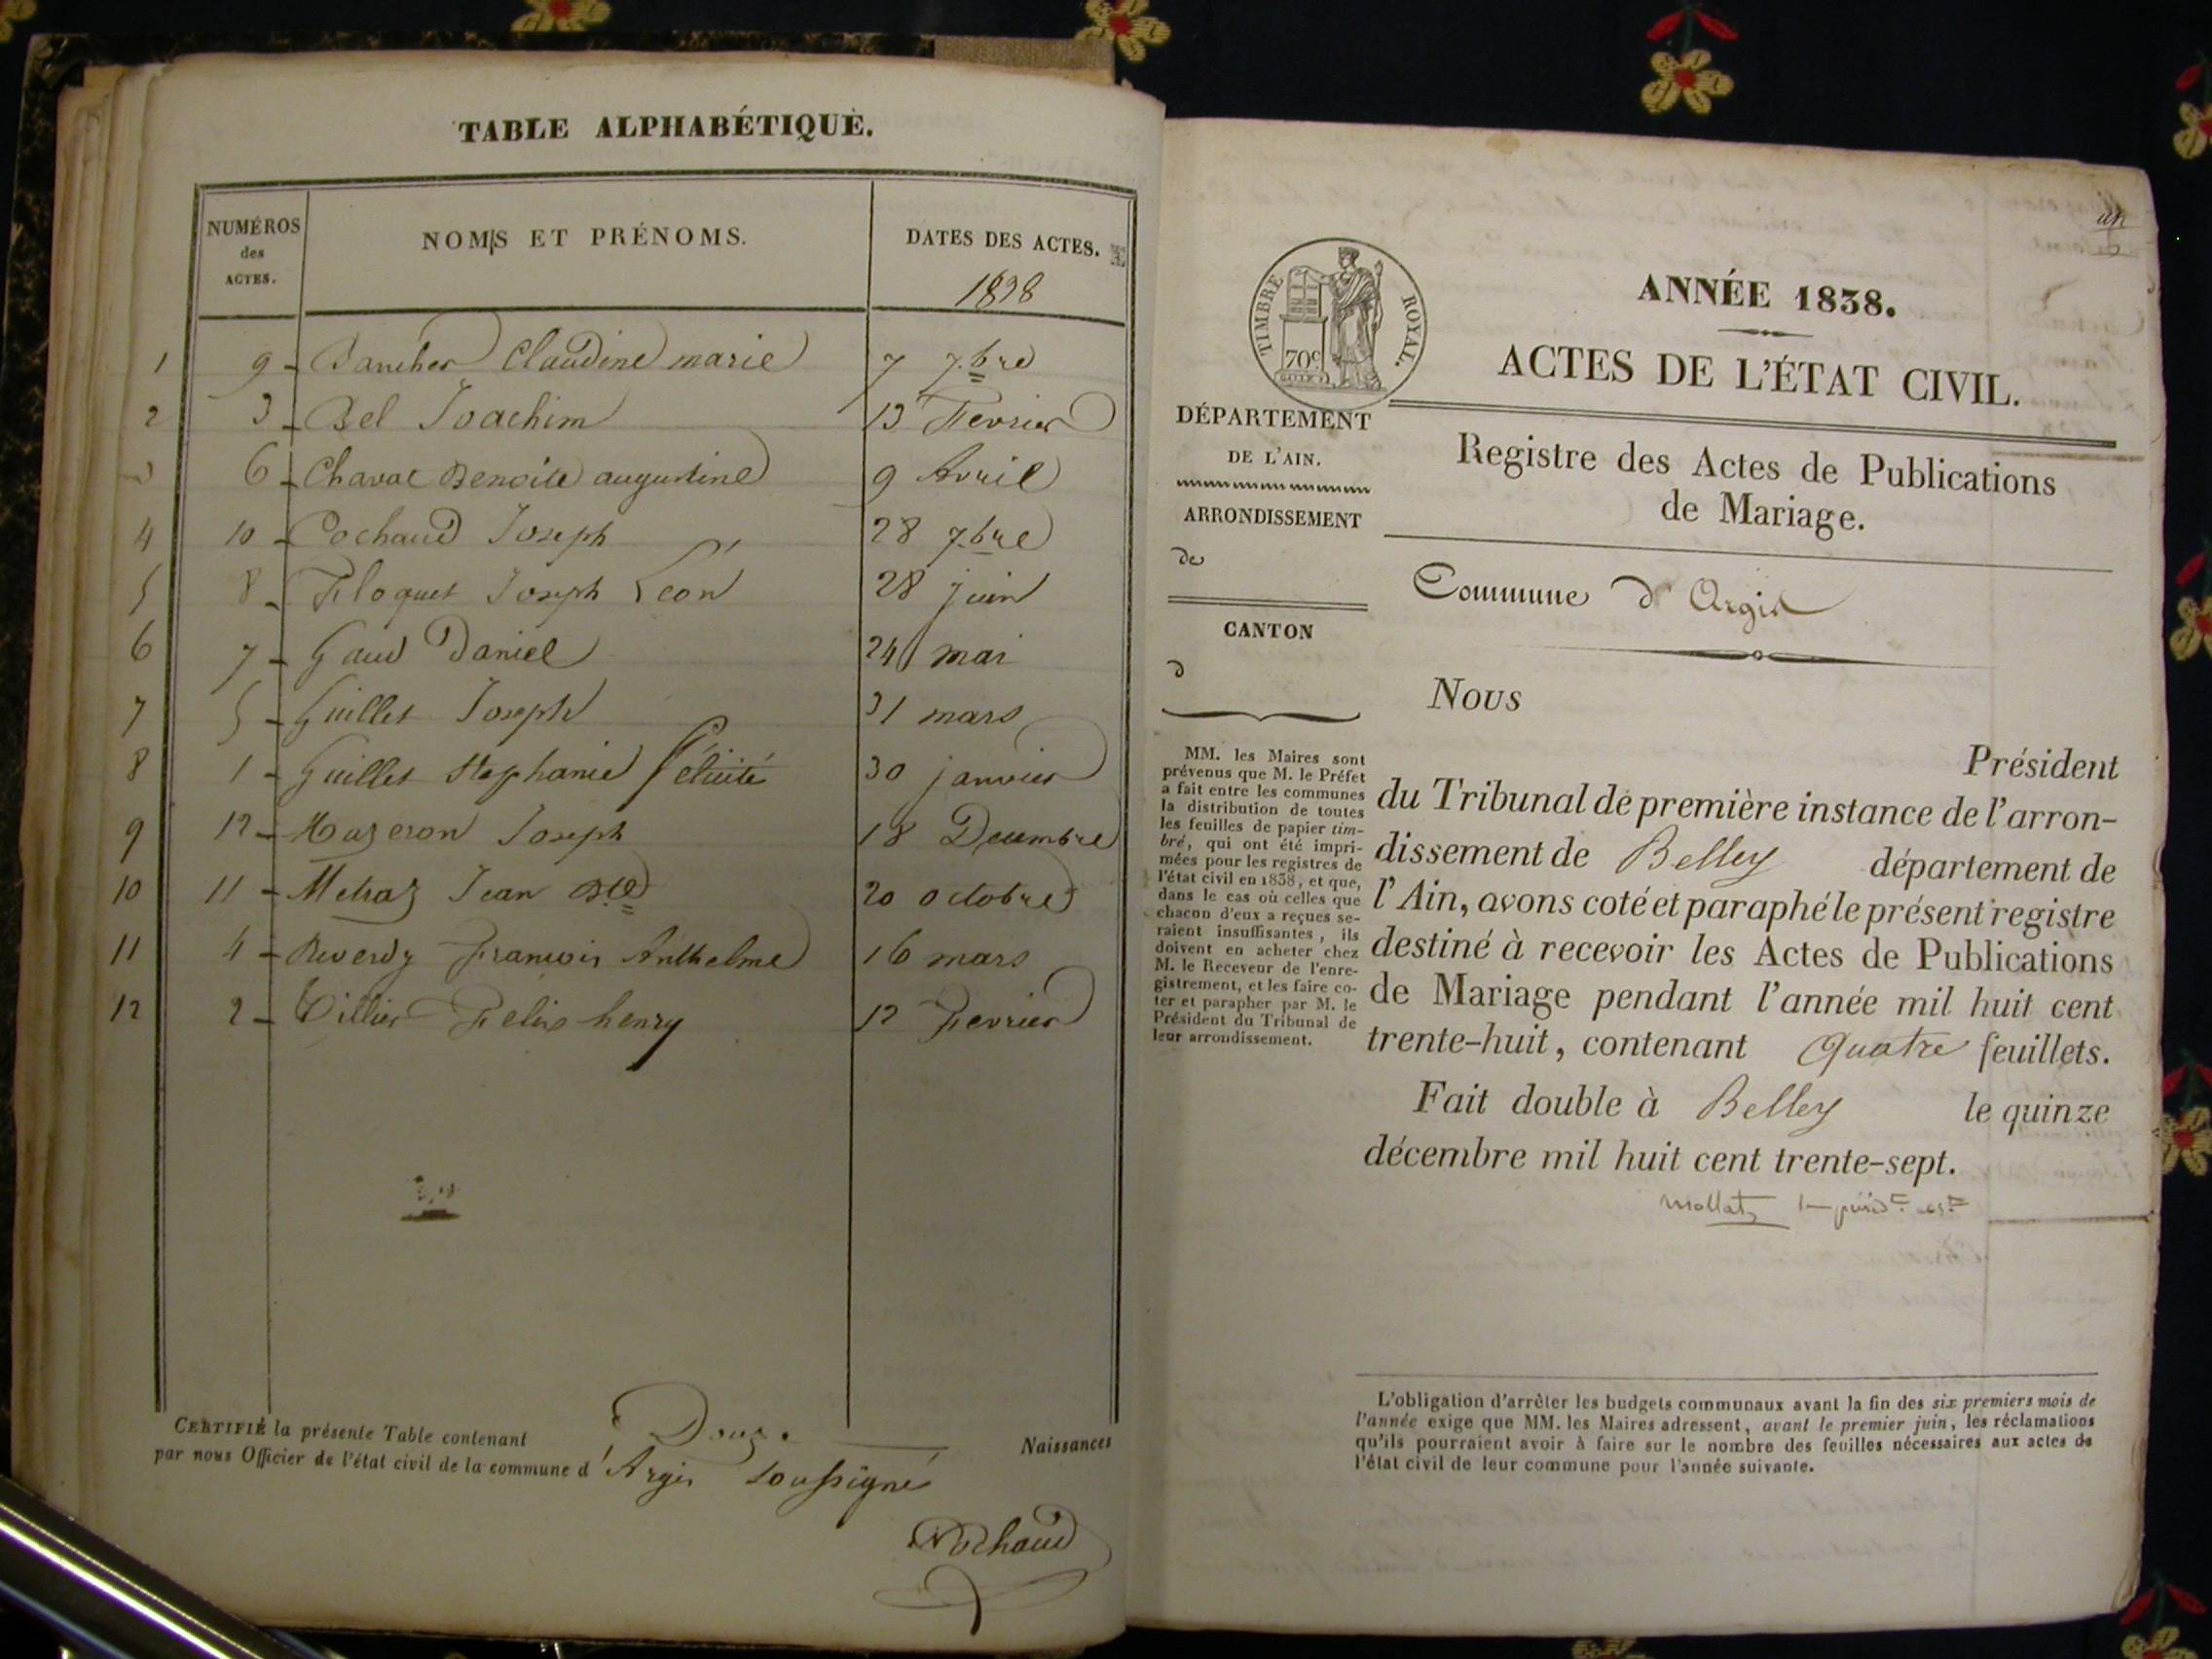 TABLE ALPHABÉTIQUE.
NUMÉROS
des
ACTES.
NOMS ET PRÉNOMS.
DATES DES ACTES.
1838
1 9 Claudine marie 7 7bre
2 3 Bel Joachim 13 Fevrier
3 6 Chavat Benoite augustine 9 Avril
4 10 Cochaud Joseph 28 7bre
5 8 Floquet Joseph Léon 28 juin
6 7 Gaud Daniel 24 mai
7 5 Guillet Joseph 31 mars
8 1 Guillet Stephanie Félicité 30 janvier
9 12 Mazeron Joseph 18 Decembre
10 11 Metraz Jean Bte 20 octobre
11 4 Reverdy François Anthelme 16 mars
12 2 Tillier Felix henry 12 Fevrier
CERTIFIÉ la présente Table contenant Douze Naissances
par nous Officier de l'état civil de la commune d'Argis soussigné
Cochaud
un
TIMBRE ROYAL.
70c
ANNÉE 1838.
ACTES DE L'ÉTAT CIVIL.
DÉPARTEMENT
DE L'AIN.
ARRONDISSEMENT
de
CANTON
d
Registre des Actes de Publications
de Mariage.
Commune d'Argis
MM. les Maires sont
prévenus que M. le Préfet
a fait entre les communes
la distribution de toutes
les feuilles de papier tim-
bré, qui ont été impri-
mées pour les registres de
l'état civil en 1838, et que,
dans le cas où celles que
chacun d'eux a reçues se-
raient insuffisantes, ils
doivent en acheter chez
M. le Receveur de l'enre-
gistrement, et les faire co-
ter et parapher par M. le
Président du Tribunal de
leur arrondissement.
Nous
Président
du Tribunal de première instance de l'arron-
dissement de Belley département de
l'Ain, avons coté et paraphé le présent registre
destiné à recevoir les Actes de Publications
de Mariage pendant l'année mil huit cent
trente-huit, contenant Quatre feuillets.
Fait double à Belley le quinze
décembre mil huit cent trente-sept.
Mollat
L'obligation d'arrêter les budgets communaux avant la fin des six premiers mois de
l'année exige que MM. les Maires adressent, avant le premier juin, les réclamations
qu'ils pourraient avoir à faire sur le nombre des feuilles nécessaires aux actes de
l'état civil de leur commune pour l'année suivante.